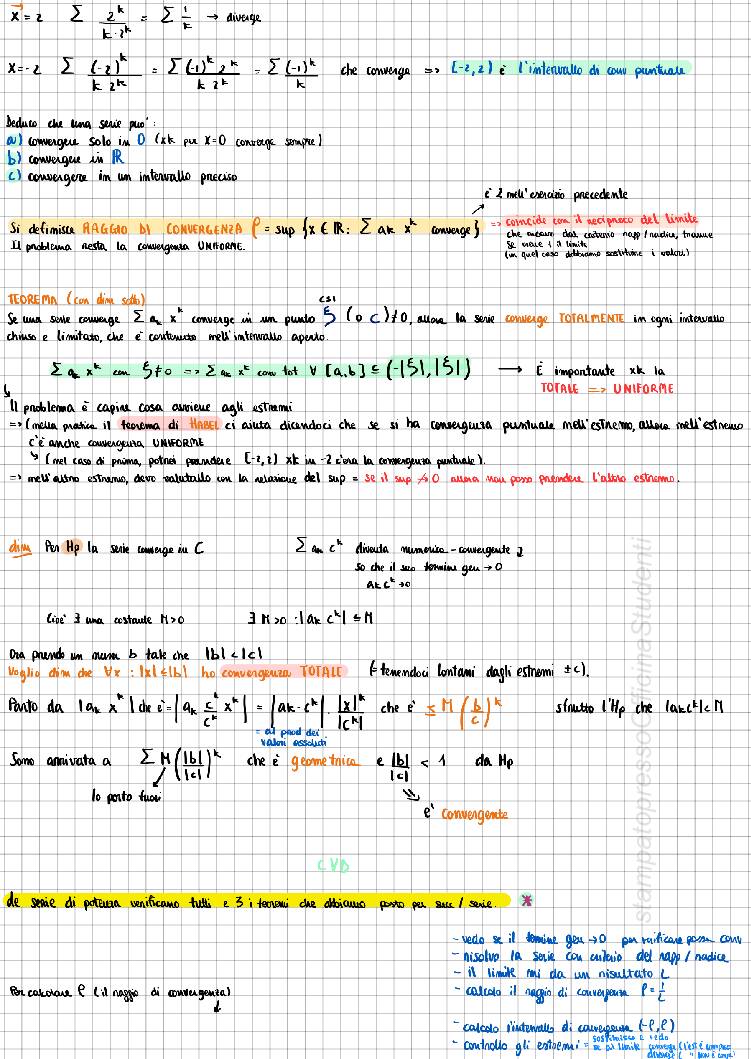 x = 2 Σ 2^k / k·2^k = Σ 1/k → diverge
x = -2 Σ (-2)^k / k 2^k = Σ (-1)^k 2^k / k 2^k = Σ (-1)^k / k che converge => [-2,2) è l'intervallo di conv puntuale
Deduco che una serie può:
a) convergere solo in 0 (xk per x=0 converge sempre)
b) convergere in ℝ
c) convergere in un intervallo preciso
è 2 nell'esercizio precedente
Si definisce RAGGIO DI CONVERGENZA ρ = sup {x ∈ ℝ: Σ ak x^k converge} => coincide con il reciproco del limite
che usciva dal criterio rapp/radice, tranne
se viene 1 il limite
(in quel caso dobbiamo sostituire i valori)
Il problema resta la convergenza UNIFORME.
TEOREMA (con dim sotto)
csi
Se una serie converge Σ ak x^k converge in un punto ξ (o c) ≠0, allora la serie converge TOTALMENTE in ogni intervallo
chiuso e limitato, che è contenuto nell'intervallo aperto.
Σ ak x^k con ξ≠0 => Σ ak x^k conv tot ∀ [a,b] ⊆ (-|ξ|, |ξ|) → È importante xk la
TOTALE => UNIFORME
Il problema è capire cosa avviene agli estremi
=> (nella pratica il teorema di HABEL ci aiuta dicendoci che se si ha convergenza puntuale nell'estremo, allora nell'estremo
c'è anche convergenza UNIFORME
↳ (nel caso di prima, potrei prendere [-2,2) xk in -2 c'era la convergenza puntuale).
=> nell'altro estremo, devo valutarlo con la relazione del sup = se il sup ↛ 0 allora non posso prendere l'altro estremo.
dim Per Hp la serie converge in C Σ ak c^k diventa numerica-convergente
so che il suo termine gen → 0
ak c^k → 0
Cioè ∃ una costante M>0 ∃ M>0 : |ak c^k| ≤ M
Ora prendo un num b tale che |b| < |c|
Voglio dim che ∀x : |x| ≤ |b| ho convergenza TOTALE (= tenendoci lontani dagli estremi ±c).
Parto da |ak x^k| che è = |ak c^k/c^k x^k| = |ak·c^k| · |x|^k/|c^k| che è ≤ M (b/c)^k sfrutto l'Hp che |ak c^k| < M
= al prod dei
valori assoluti
Sono arrivata a Σ M (|b|/|c|)^k che è geometrica e |b|/|c| < 1 da Hp
lo porto fuori
è convergente
CVD
Le serie di potenza verificano tutti e 3 i teoremi che abbiamo posto per succ / serie. *
- vedo se il termine gen → 0 per verificare possa conv
- risolvo la serie con criterio del rapp / radice
- il limite mi da un risultato L
- calcolo il raggio di convergenza ρ = 1/L
Per calcolare ρ (il raggio di convergenza)
- calcolo l'intervallo di convergenza (-ρ, ρ)
- controllo gli estremi = sostituisco e vedo
stampatopressoOfficinaStudenti